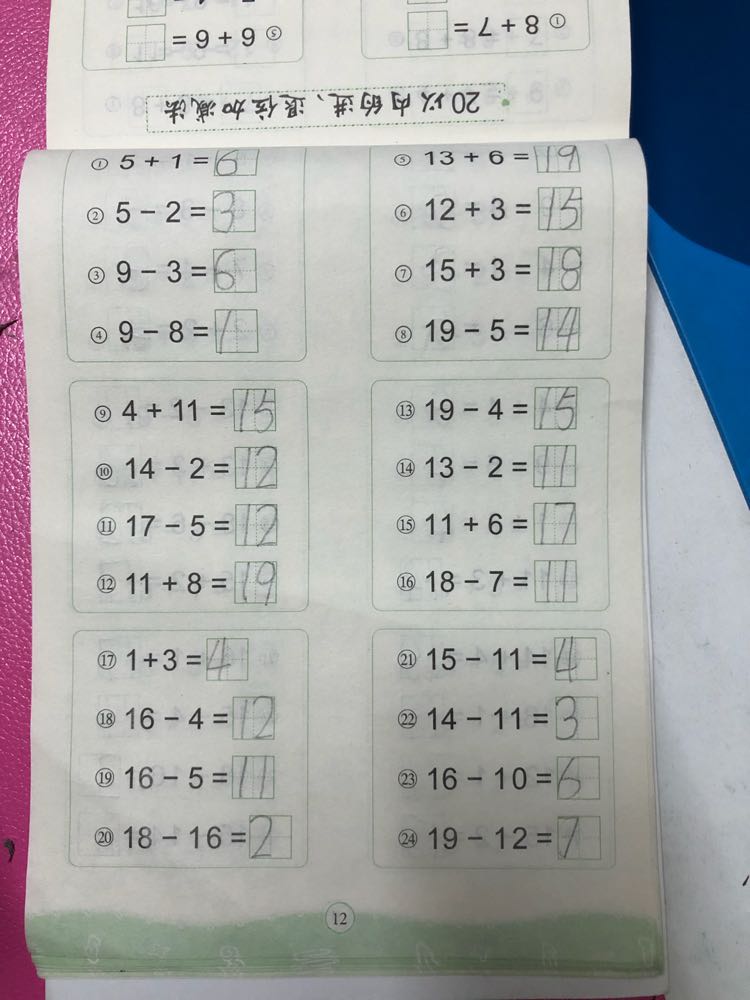 ⑤ 6 + 6 =
① 8 + 7 =
20以内的进、退位加减法
① 5 + 1 = 6
② 5 − 2 = 3
③ 9 − 3 = 6
④ 9 − 8 = 1
⑤ 13 + 6 = 19
⑥ 12 + 3 = 15
⑦ 15 + 3 = 18
⑧ 19 − 5 = 14
⑨ 4 + 11 = 15
⑩ 14 − 2 = 12
⑪ 17 − 5 = 12
⑫ 11 + 8 = 19
⑬ 19 − 4 = 15
⑭ 13 − 2 = 11
⑮ 11 + 6 = 17
⑯ 18 − 7 = 11
⑰ 1+3 = 4
⑱ 16 − 4 = 12
⑲ 16 − 5 = 11
⑳ 18 − 16 = 2
㉑ 15 − 11 = 4
㉒ 14 − 11 = 3
㉓ 16 − 10 = 6
㉔ 19 − 12 = 7
12